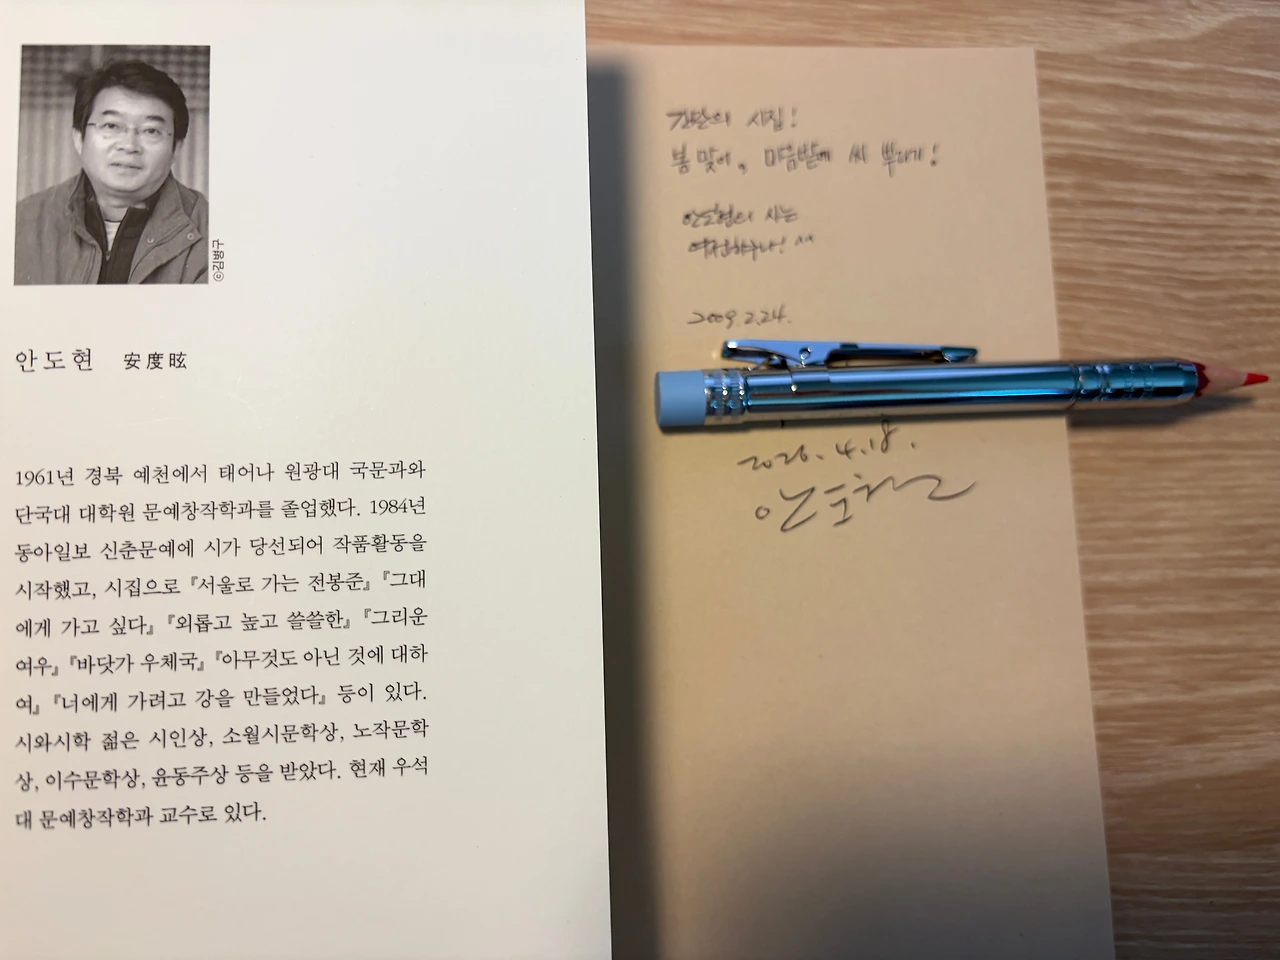 ©김병구
안도현 安度眩
1961년 경북 예천에서 태어나 원광대 국문과와
단국대 대학원 문예창작학과를 졸업했다. 1984년
동아일보 신춘문예에 시가 당선되어 작품활동을
시작했고, 시집으로 『서울로 가는 전봉준』 『그대
에게 가고 싶다』 『외롭고 높고 쓸쓸한』 『그리운
여우』 『바닷가 우체국』 『아무것도 아닌 것에 대하
여』 『너에게 가려고 강을 만들었다』 등이 있다.
시와시학 젊은 시인상, 소월시문학상, 노작문학
상, 이수문학상, 윤동주상 등을 받았다. 현재 우석
대 문예창작학과 교수로 있다.
시집!
봄 맞이, 마음밭에 씨 뿌리기!
안도현의 시는
여전하구나! ^^
2009.2.24.
2026.4.18.
안도현